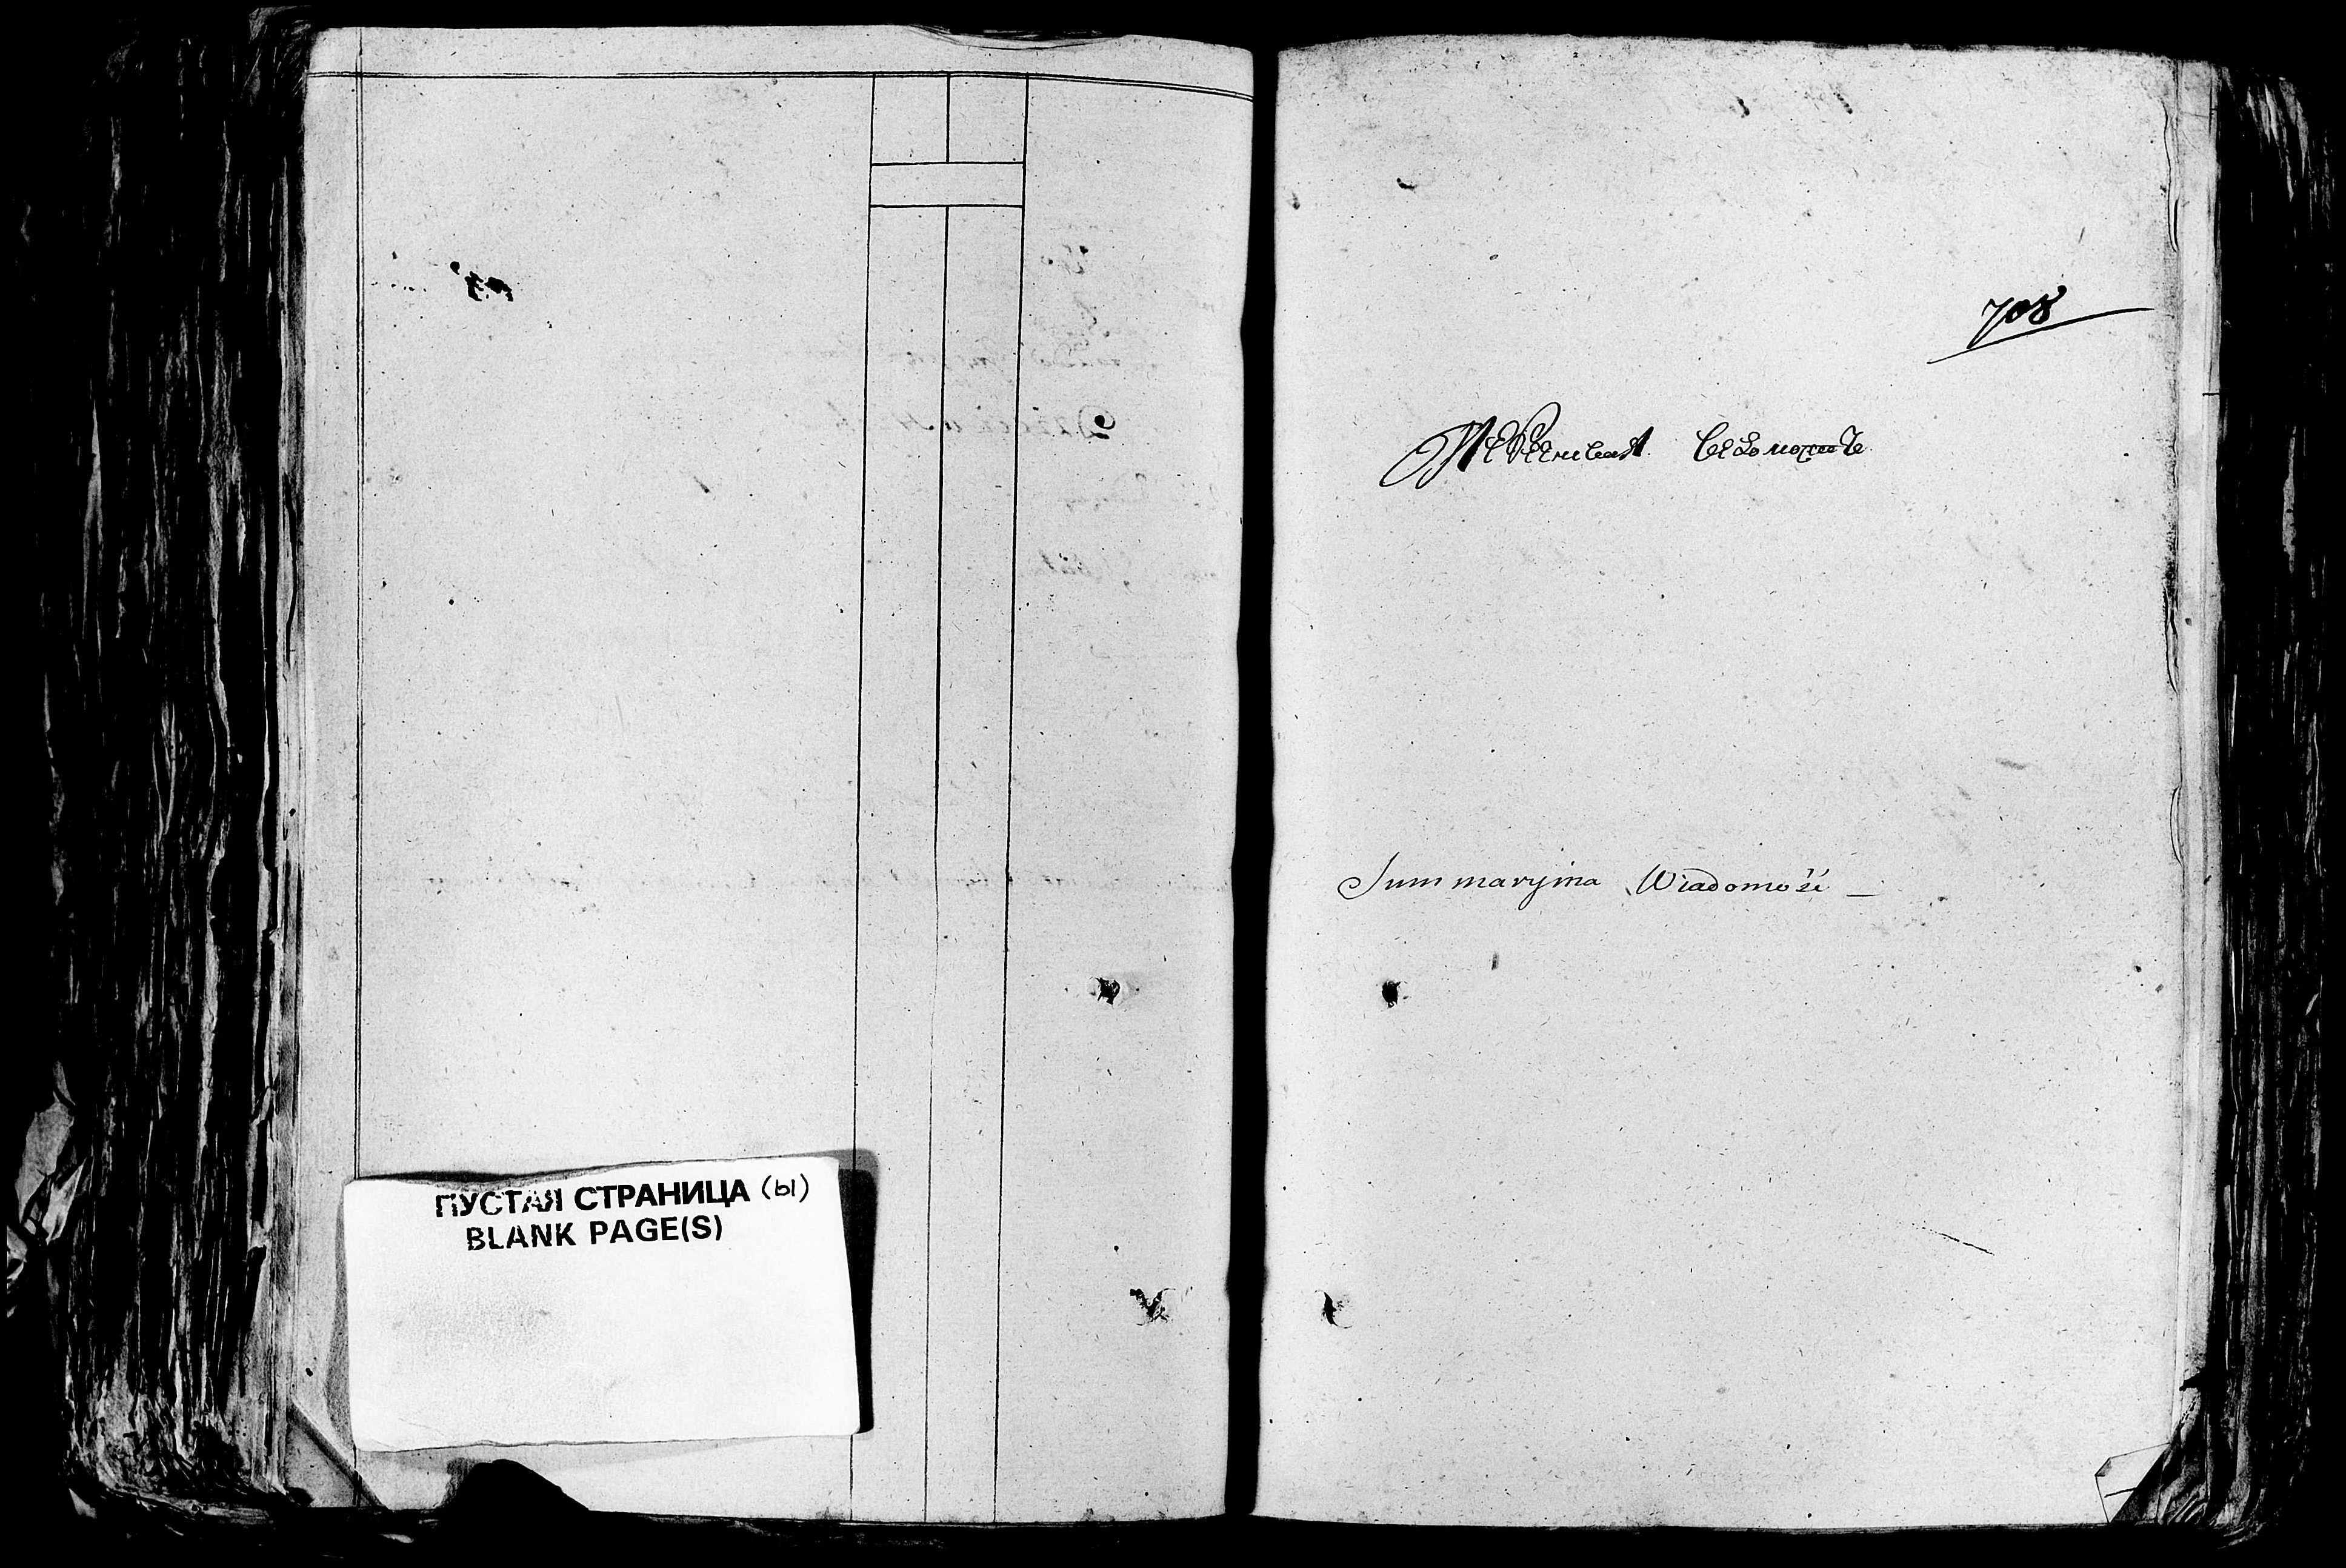 ПУСТАЯ СТРАНИЦА (ы)
BLANK PAGE(S)
708
Перечневая Ведомость
Summaryina Wiadomość —